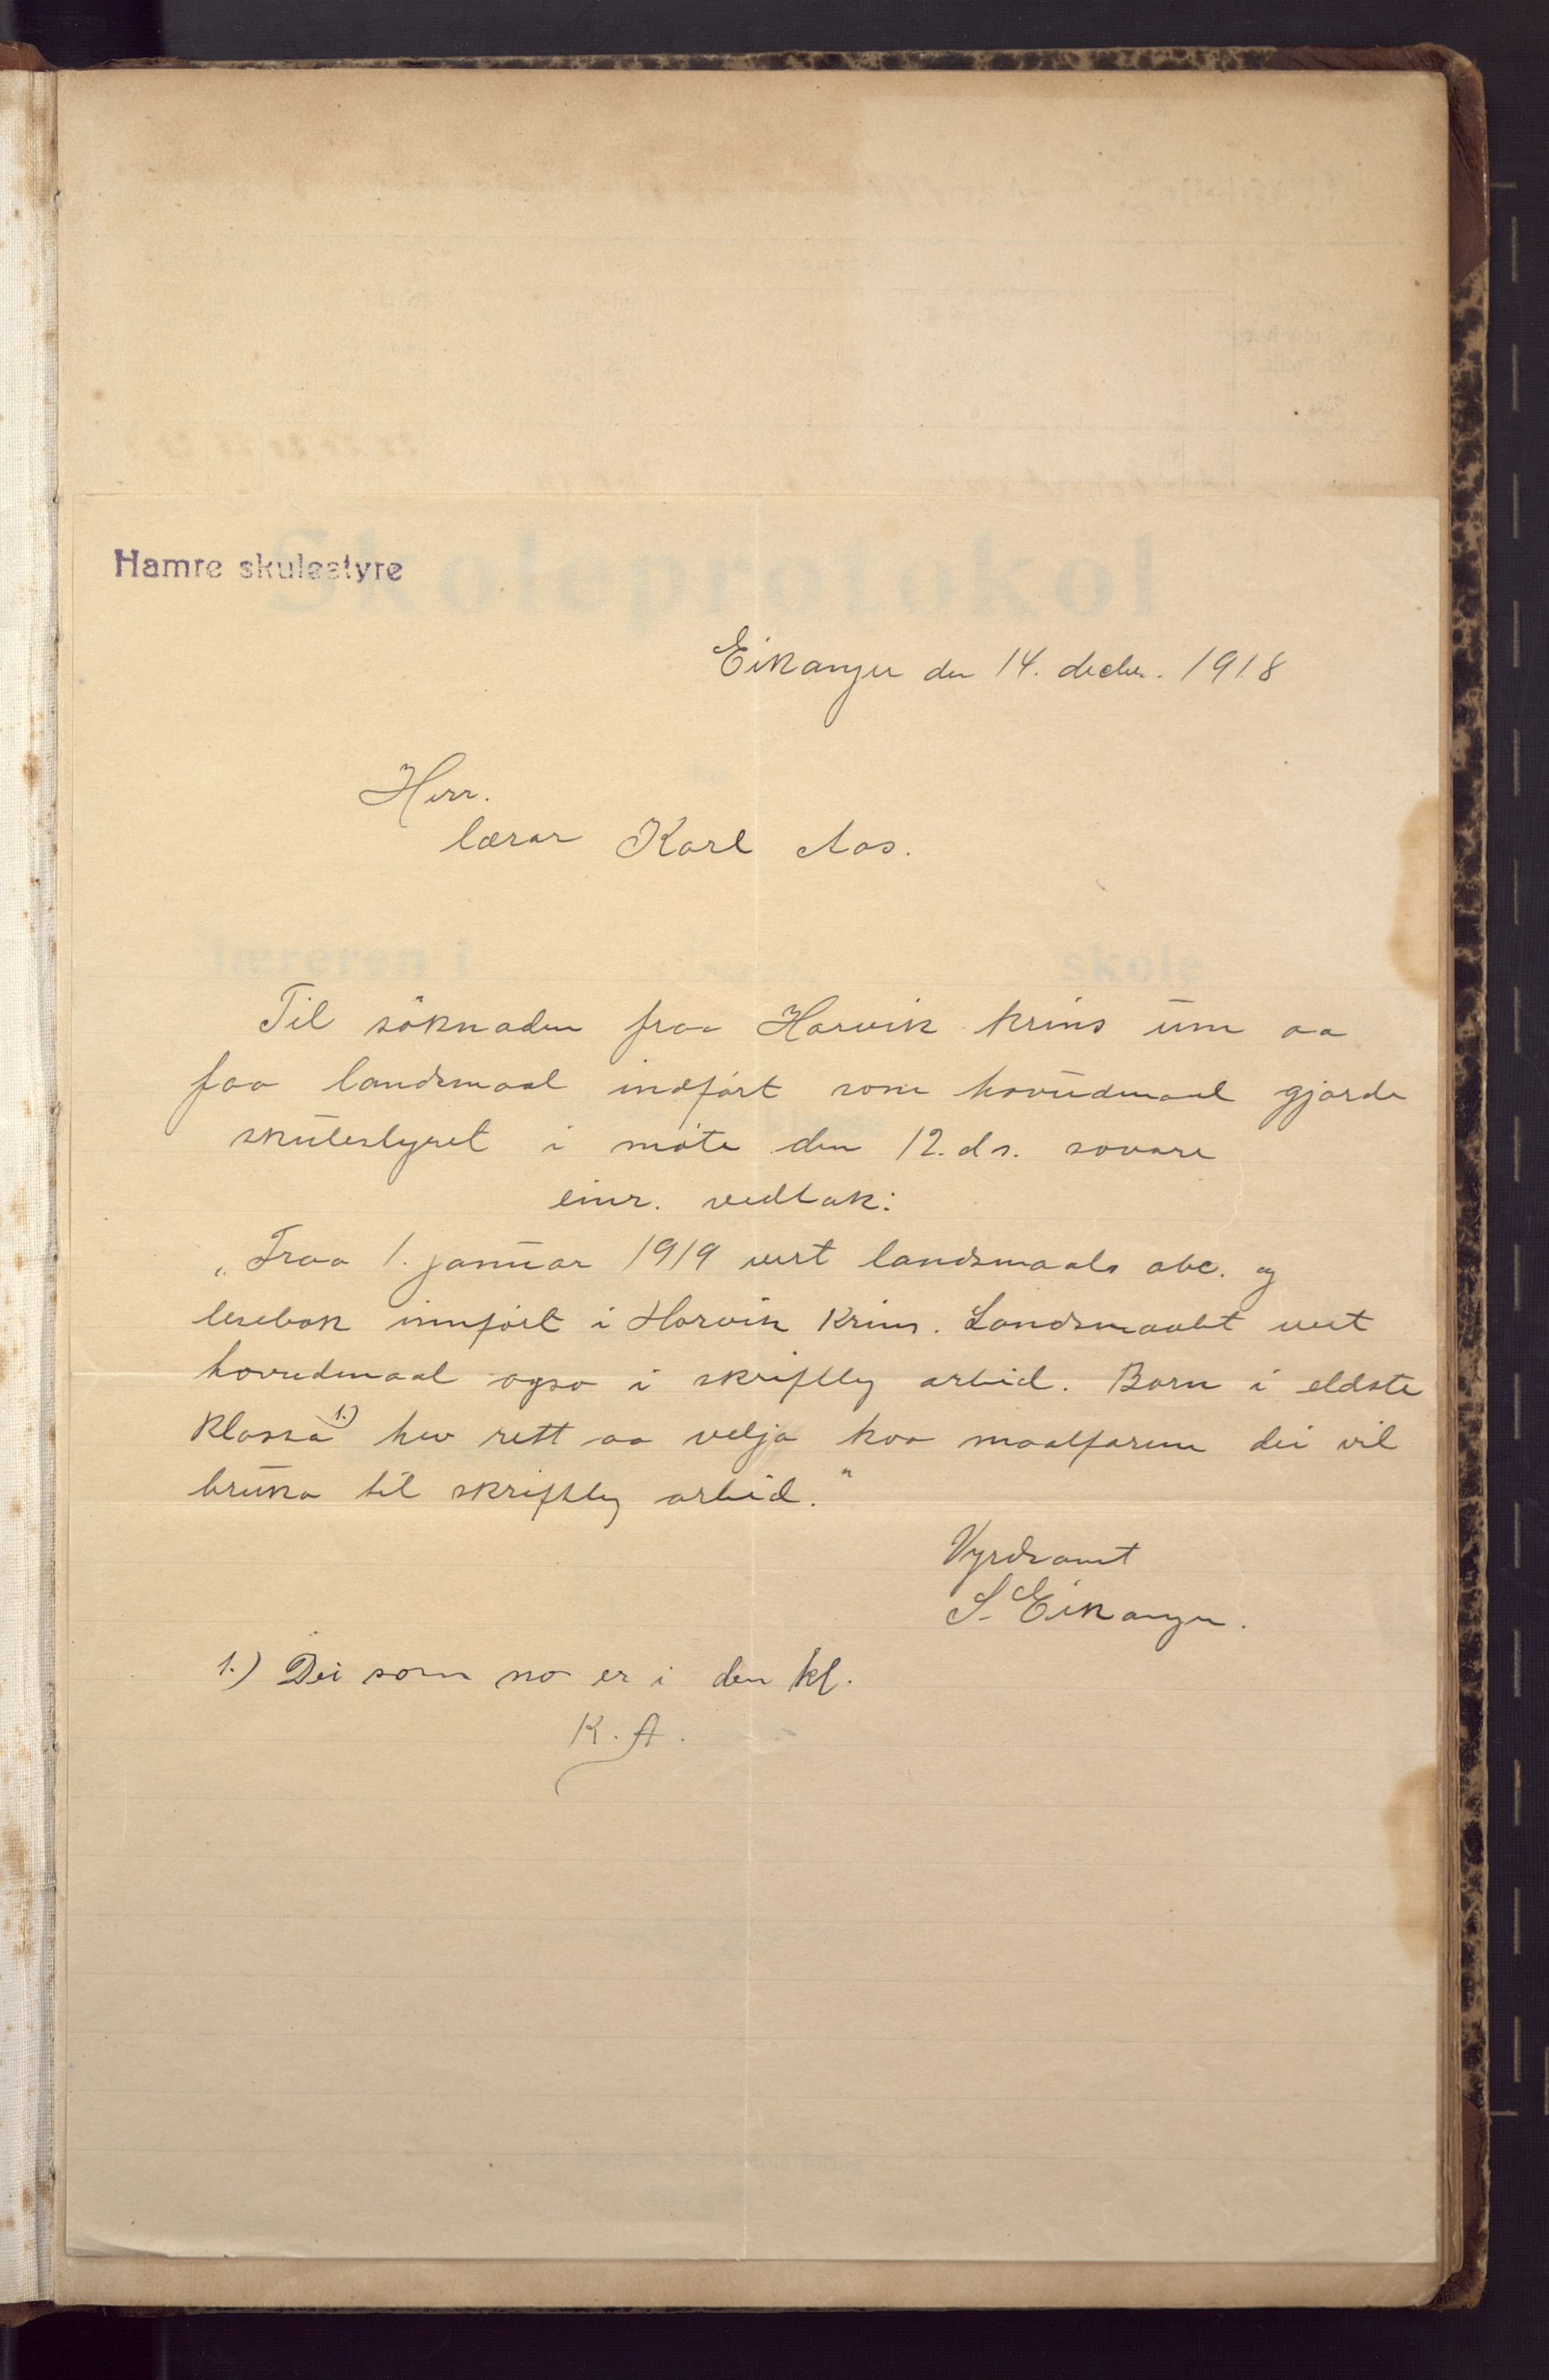 Hamre skulestyre
Skoleprotokol
Eikanger den 14. decbr. 1918
Herr.
lærar Karl Aas.
læreren i skole
Til söknaden fraa Harvik krins um aa
faa landsmaal indfört som hovudmaal gjorde
skulestyret i möte den 12. ds. sovare
einr. vedtak:
„Fraa 1. januar 1919 vert landsmaals abc. og
lesebok innfört i Horvik krins. Landsmaalet vert
hovudmaal ogso i skriftleg arbeid. Born i eldste
klassa 1.) hev rett aa velja kva maalform dei vil
bruka til skriftleg arbeid."
Vyrdsamt
S. Eikanger.
1.) Dei som no er i den kl.
K. A.